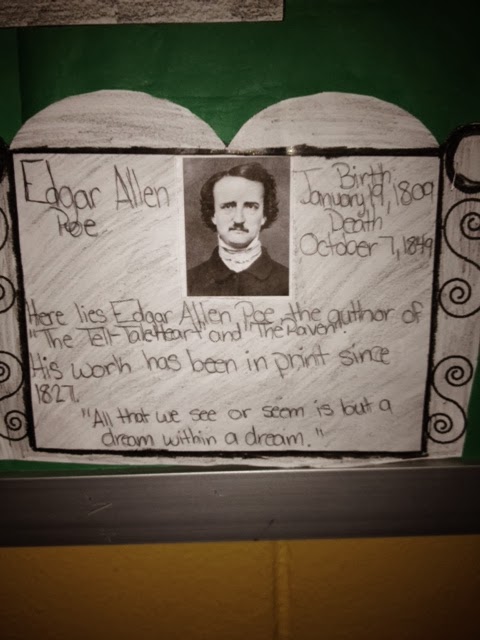 Edgar Allen
Poe
Birth
January 19, 1809
Death
October 7, 1849
Here lies Edgar Allen Poe, the author of
"The Tell-Tale Heart" and "The Raven".
His work has been in print since
1827.
"All that we see or seem is but a
dream within a dream."